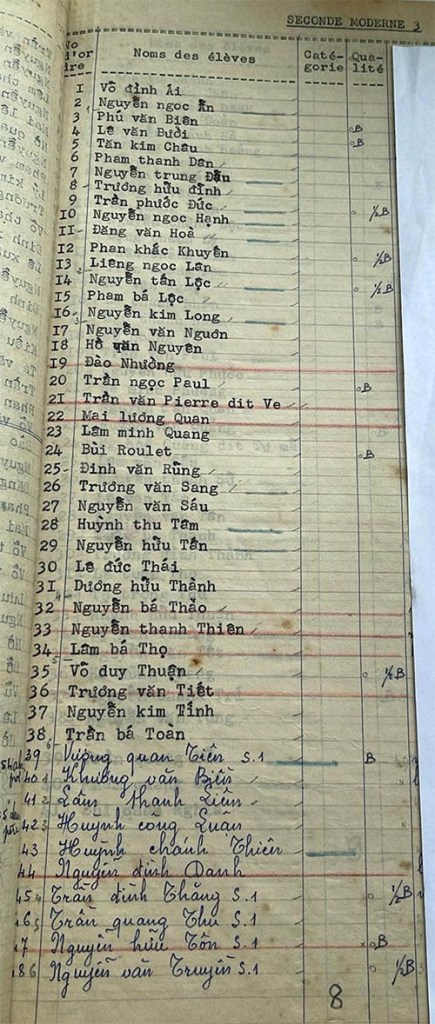 SECONDE MODERNE 3
No d'or ire Noms des élèves Caté-gorie Qua-lité
1 Võ đình Ái
2 Nguyễn ngọc Ẩn
3 Phú văn Biên
4 Lê văn Bưởi B
5 Tăn kim Châu B
6 Pham thanh Dân
7 Nguyễn trung Đậu
8 Trương hữu đỉnh
9 Trần phước Đức
10 Nguyễn ngọc Hạnh ½B
11 Đăng văn Hoà
12 Phan khắc Khuyến ½B
13 Liêng ngọc Lân
14 Nguyễn tấn Lộc ½B
15 Pham bá Lộc
16 Nguyễn kim Long
17 Nguyễn văn Nguơn
18 Hồ văn Nguyên
19 Đào Nhường
20 Trần ngọc Paul B
21 Trần văn Pierre dit Ve
22 Mai lương Quan
23 Lâm minh Quang
24 Bùi Roulet B
25 Đinh văn Rũng
26 Trương văn Sang
27 Nguyễn văn Sáu
28 Huỳnh thu Tâm
29 Nguyễn hữu Tấn
30 Lê đức Thái
31 Dương hữu Thành
32 Nguyễn bá Thảo
33 Nguyễn thanh Thiên
34 Lâm bá Thọ
35 Võ duy Thuận ½B
36 Trương văn Tiết
37 Nguyễn kim Tính
38 Trần bá Toàn
39 Vương quan Tiên S.1 B
40 Khương văn Biền
41 Lâm thanh Liêm
42 Huỳnh công Luận
43 Huỳnh chánh Thiên
44 Nguyễn đình Danh
45 Trần đình Thăng S.1 ½B
46 Trần quang Thu S.1
47 Nguyễn hữu Tôn S.1 B
48 Nguyễn văn Truyền S.1 ½B
8